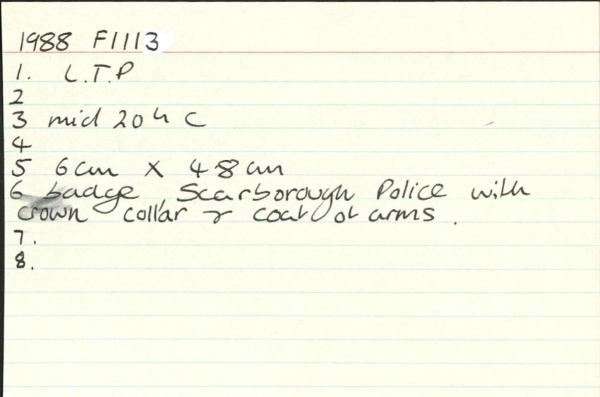 1988 F1113
1. L.T.P
2
3 mid 20th C
4
5 6cm X 4.8cm
6 badge, Scarborough Police with
crown collar & coat of arms.
7.
8.